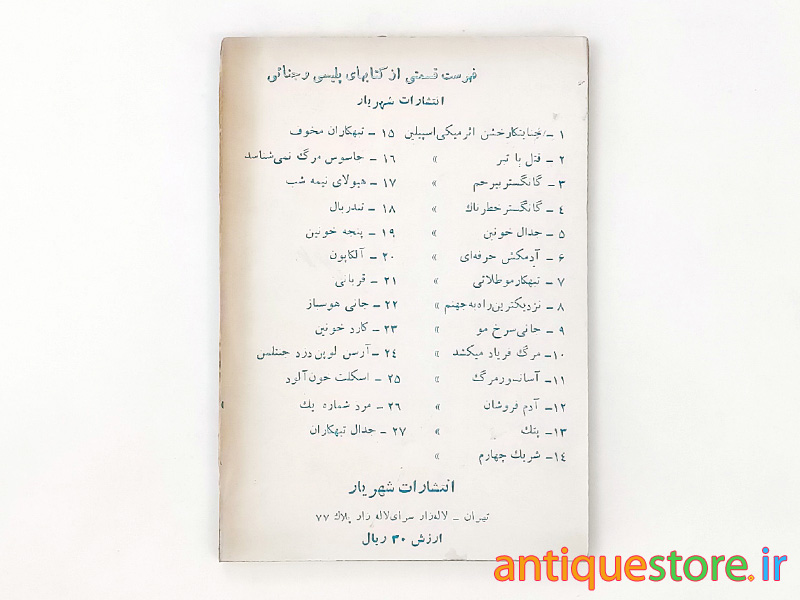 فهرست قسمتی از کتابهای پلیسی و جنائی
انتشارات شهریار
۱ – جنایتکار خشن اثر میکی اسپیلین
۲ – قتل با تبر »
۳ – گانگستر بیرحم »
۴ – گانگستر خطرناک »
۵ – جدال خونین »
۶ – آدمکش حرفه‌ای »
۷ – تبهکار مو طلائی »
۸ – نزدیکترین راه به جهنم »
۹ – جانی سرخ مو »
۱۰– مرگ فریاد میکشد »
۱۱– آسانسور مرگ »
۱۲– آدم فروشان »
۱۳– پتک »
۱۴– شریک چهارم »
۱۵ – تبهکاران مخوف
۱۶ – جاسوس مرگ نمی‌شناسد
۱۷ – هیولای نیمه شب
۱۸ –
۱۹ – پنجه خونین
۲۰ – آلکاپون
۲۱ – قربانی
۲۲ – جانی هوسباز
۲۳ – کارد خونین
۲۴ – آرسن لوپن دزد جنتلمن
۲۵ – اسکلت خون آلود
۲۶ – مرد شماره یک
۲۷ – جدال تبهکاران
انتشارات شهریار
تهران – لاله‌زار سرای لاله زار پلاک ۷۷
ارزش ۳۰ ریال
antiquestore.ir